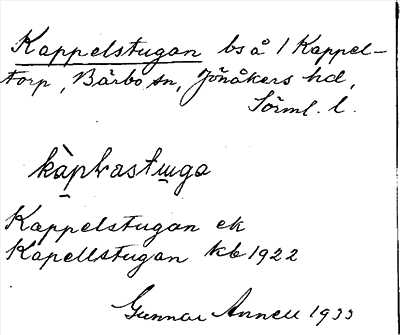 Kappelstugan bs å 1 Kappel-
torp, Bärbo sn, Jönåkers hd,
Sörml. l.
kàplrastuga
Kappelstugan ek
Kapellstugan kb 1922
Gunnar Annell 1933